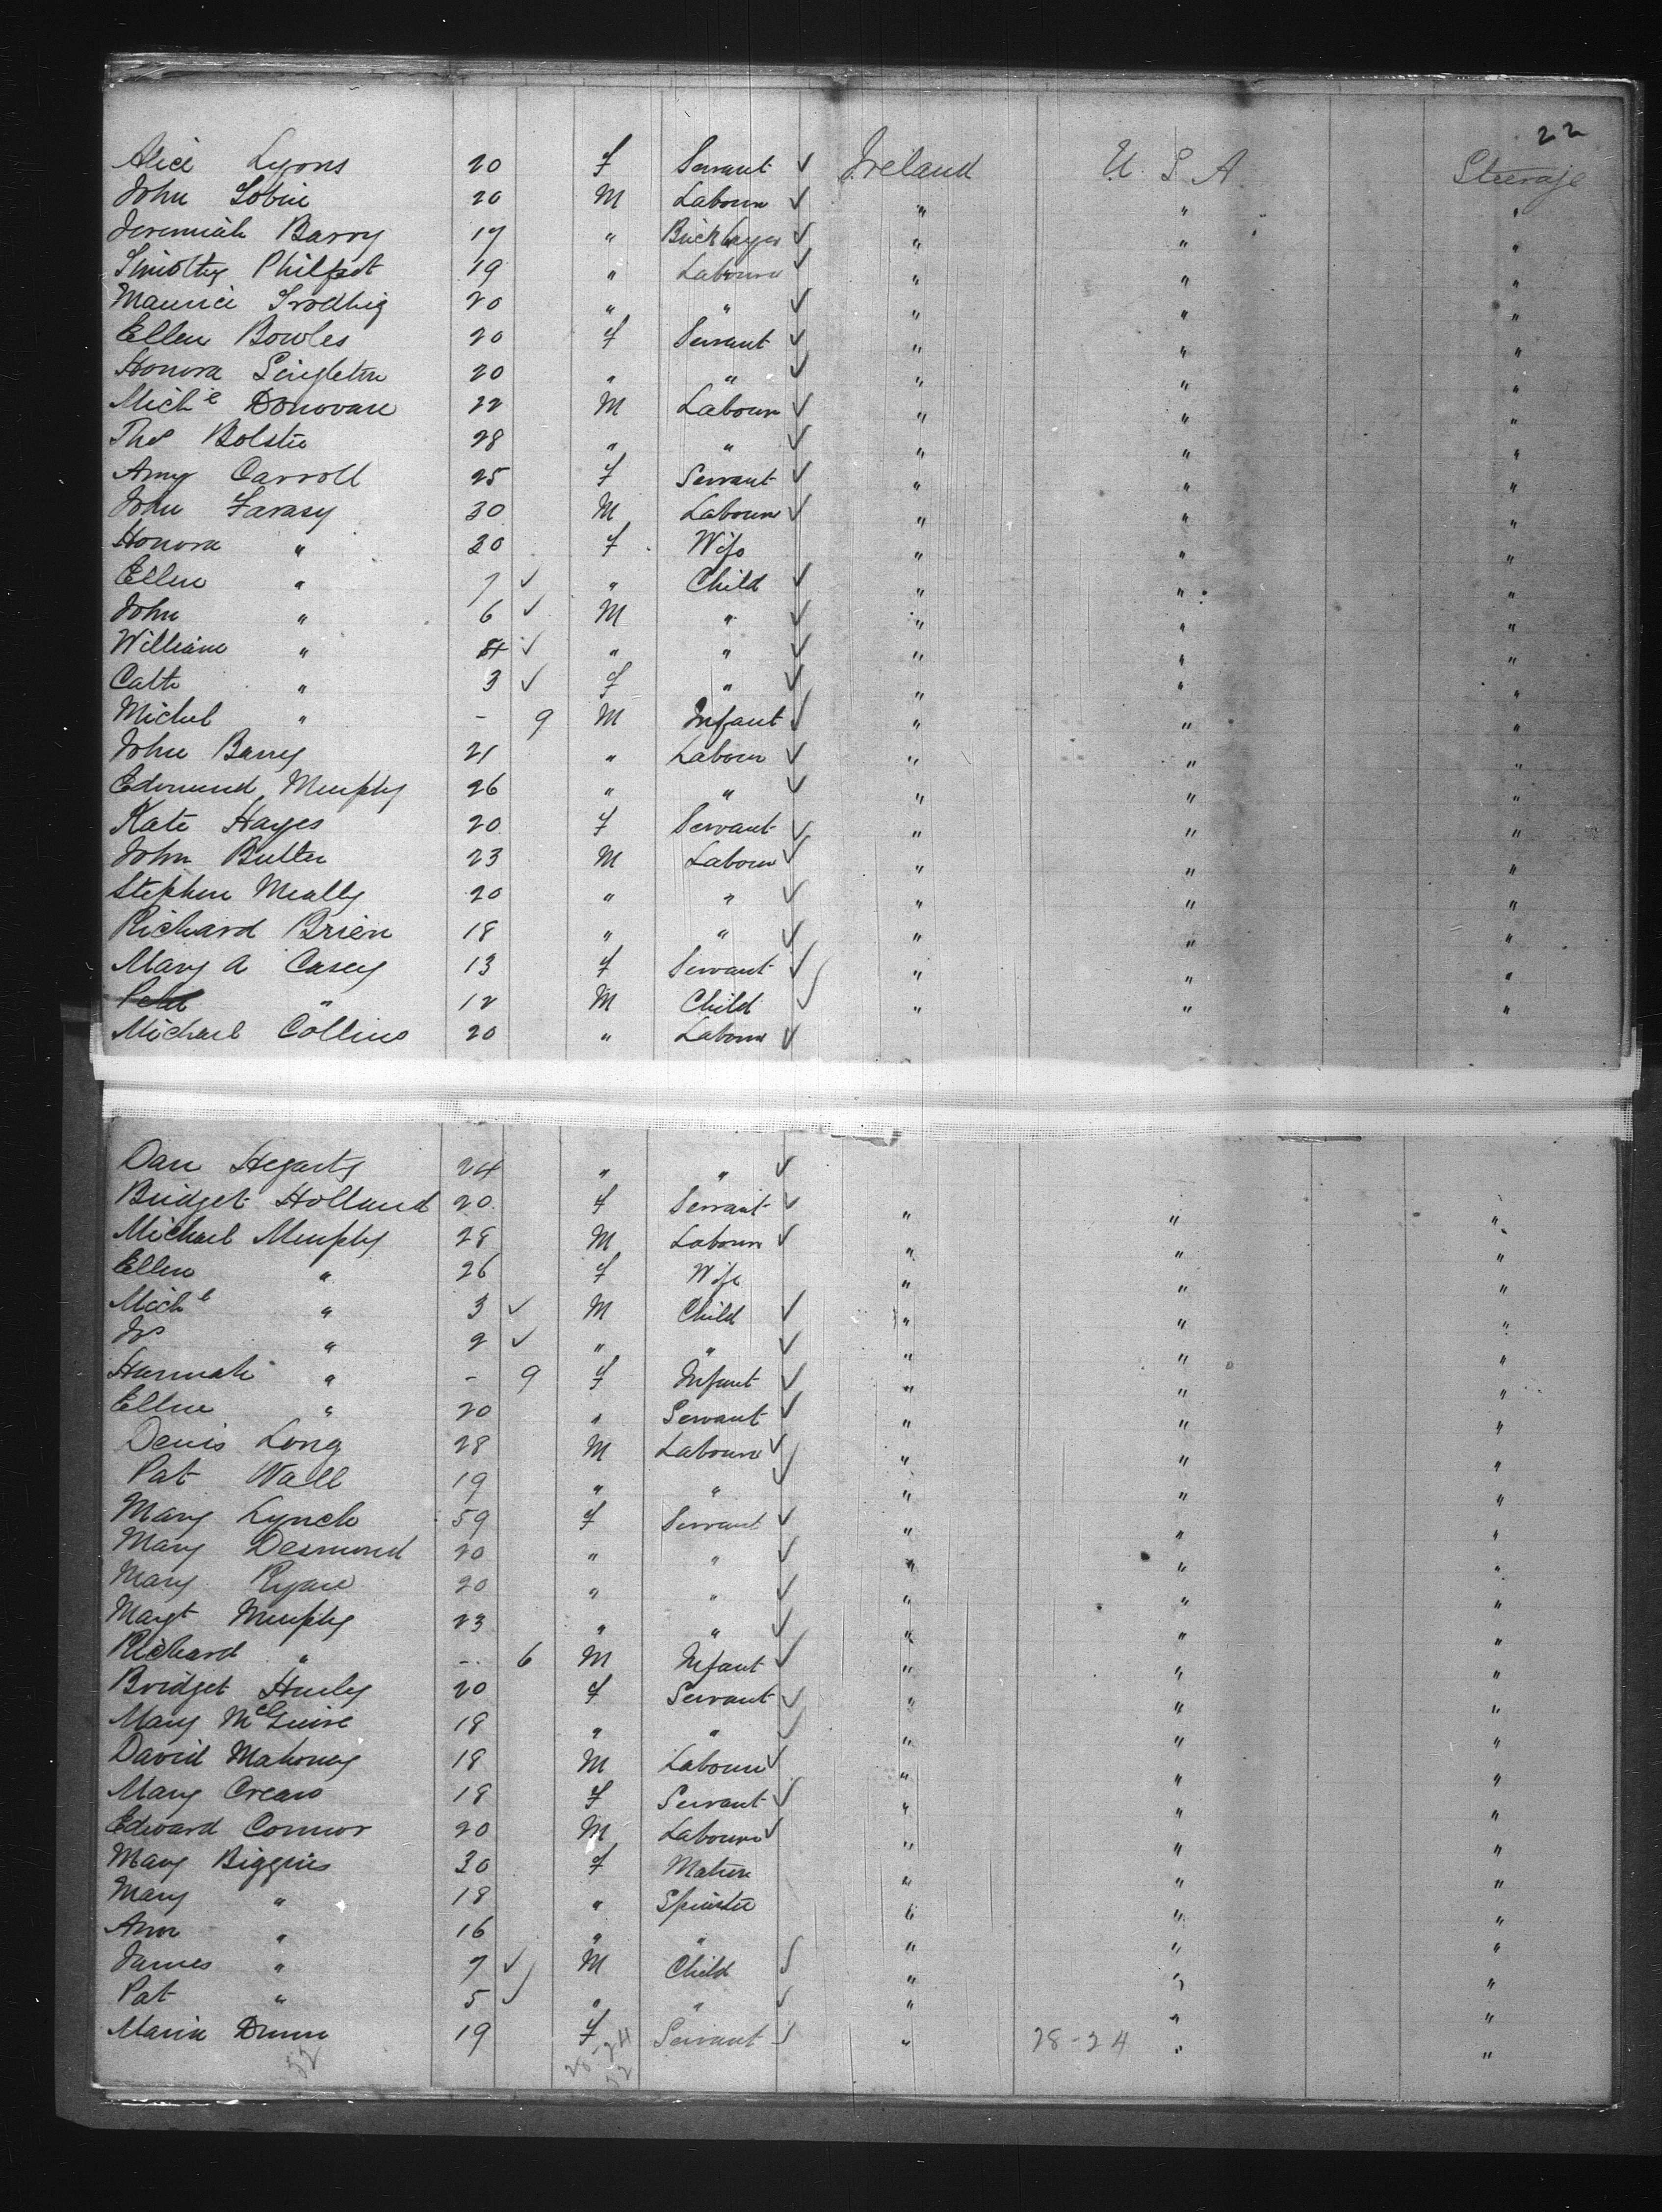 22
Alice Lyons 20 F Servant ✓ Ireland U. S. A Steerage
John Tobin 20 M Labourer ✓ " " "
Jeremiah Barry 17 " Bricklayer ✓ " " "
Timothy Philpot 19 " Labourer ✓ " " "
Maurice 20 " " ✓ " " "
Ellen Bowles 20 F Servant ✓ " " "
Honora Singleton 20 " " ✓ " " "
Michl Donovan 22 M Labourer ✓ " " "
Thos Bolster 28 " " ✓ " " "
Amy Carroll 25 F Servant ✓ " " "
John Farasy 30 M Labourer ✓ " " "
Honora " 30 F Wife " " "
Ellen " 7 ✓ " Child ✓ " " "
John " 6 ✓ M " ✓ " " "
William " 4 ✓ " " ✓ " " "
Cath " 3 ✓ F " ✓ " " "
Michel " - 9 M Infant ✓ " " "
John Barry 21 " Labour ✓ " " "
Edmund Murphy 26 " " ✓ " " "
Kate Hayes 20 F Servant ✓ " " "
John Butler 23 M Labour ✓ " " "
Stephen Meally 20 " " ✓ " " "
Richard Brien 18 " " ✓ " " "
Mary A Casey 13 F Servant ✓ " " "
" 12 M Child ✓ " " "
Michael Collins 20 " Labour ✓
Dan Hegarty 24 " " ✓
Bridget Holland 20 F Servant ✓ " " "
Michael Murphy 28 M Labourer ✓ " " "
Ellen " 26 F Wife " " "
Michl " 3 ✓ M Child ✓ " " "
Jno " 2 ✓ " " ✓ " " "
Hannah " - 9 F Infant ✓ " " "
Ellen " 20 " Servant ✓ " " "
Denis Long 28 M Labourer ✓ " " "
Pat Wall 19 " " ✓ " " "
Mary Lynch 59 F Servant ✓ " " "
Mary Desmond 20 " " ✓ " " "
Mary Ryan 20 " " ✓ " " "
Margt Murphy 23 " " ✓ " " "
Richard " - 6 M Infant ✓ " " "
Bridget Hurly 20 F Servant ✓ " " "
Mary McGuire 18 " " ✓ " " "
David Mahoney 18 M Labourer ✓ " " "
Mary Crean 18 F Servant ✓ " " "
Edward Connor 20 M Labourer ✓ " " "
Mary Biggins 30 F Matron " " "
Mary " 18 " Spinster " " "
Ann " 16 " " " " "
James " 7 ✓ M Child ✓ " " "
Pat " 5 ✓ " " ✓ " " "
Maria Dunn 19 F Servant ✓ " 28-24 " "
52 28-24
52